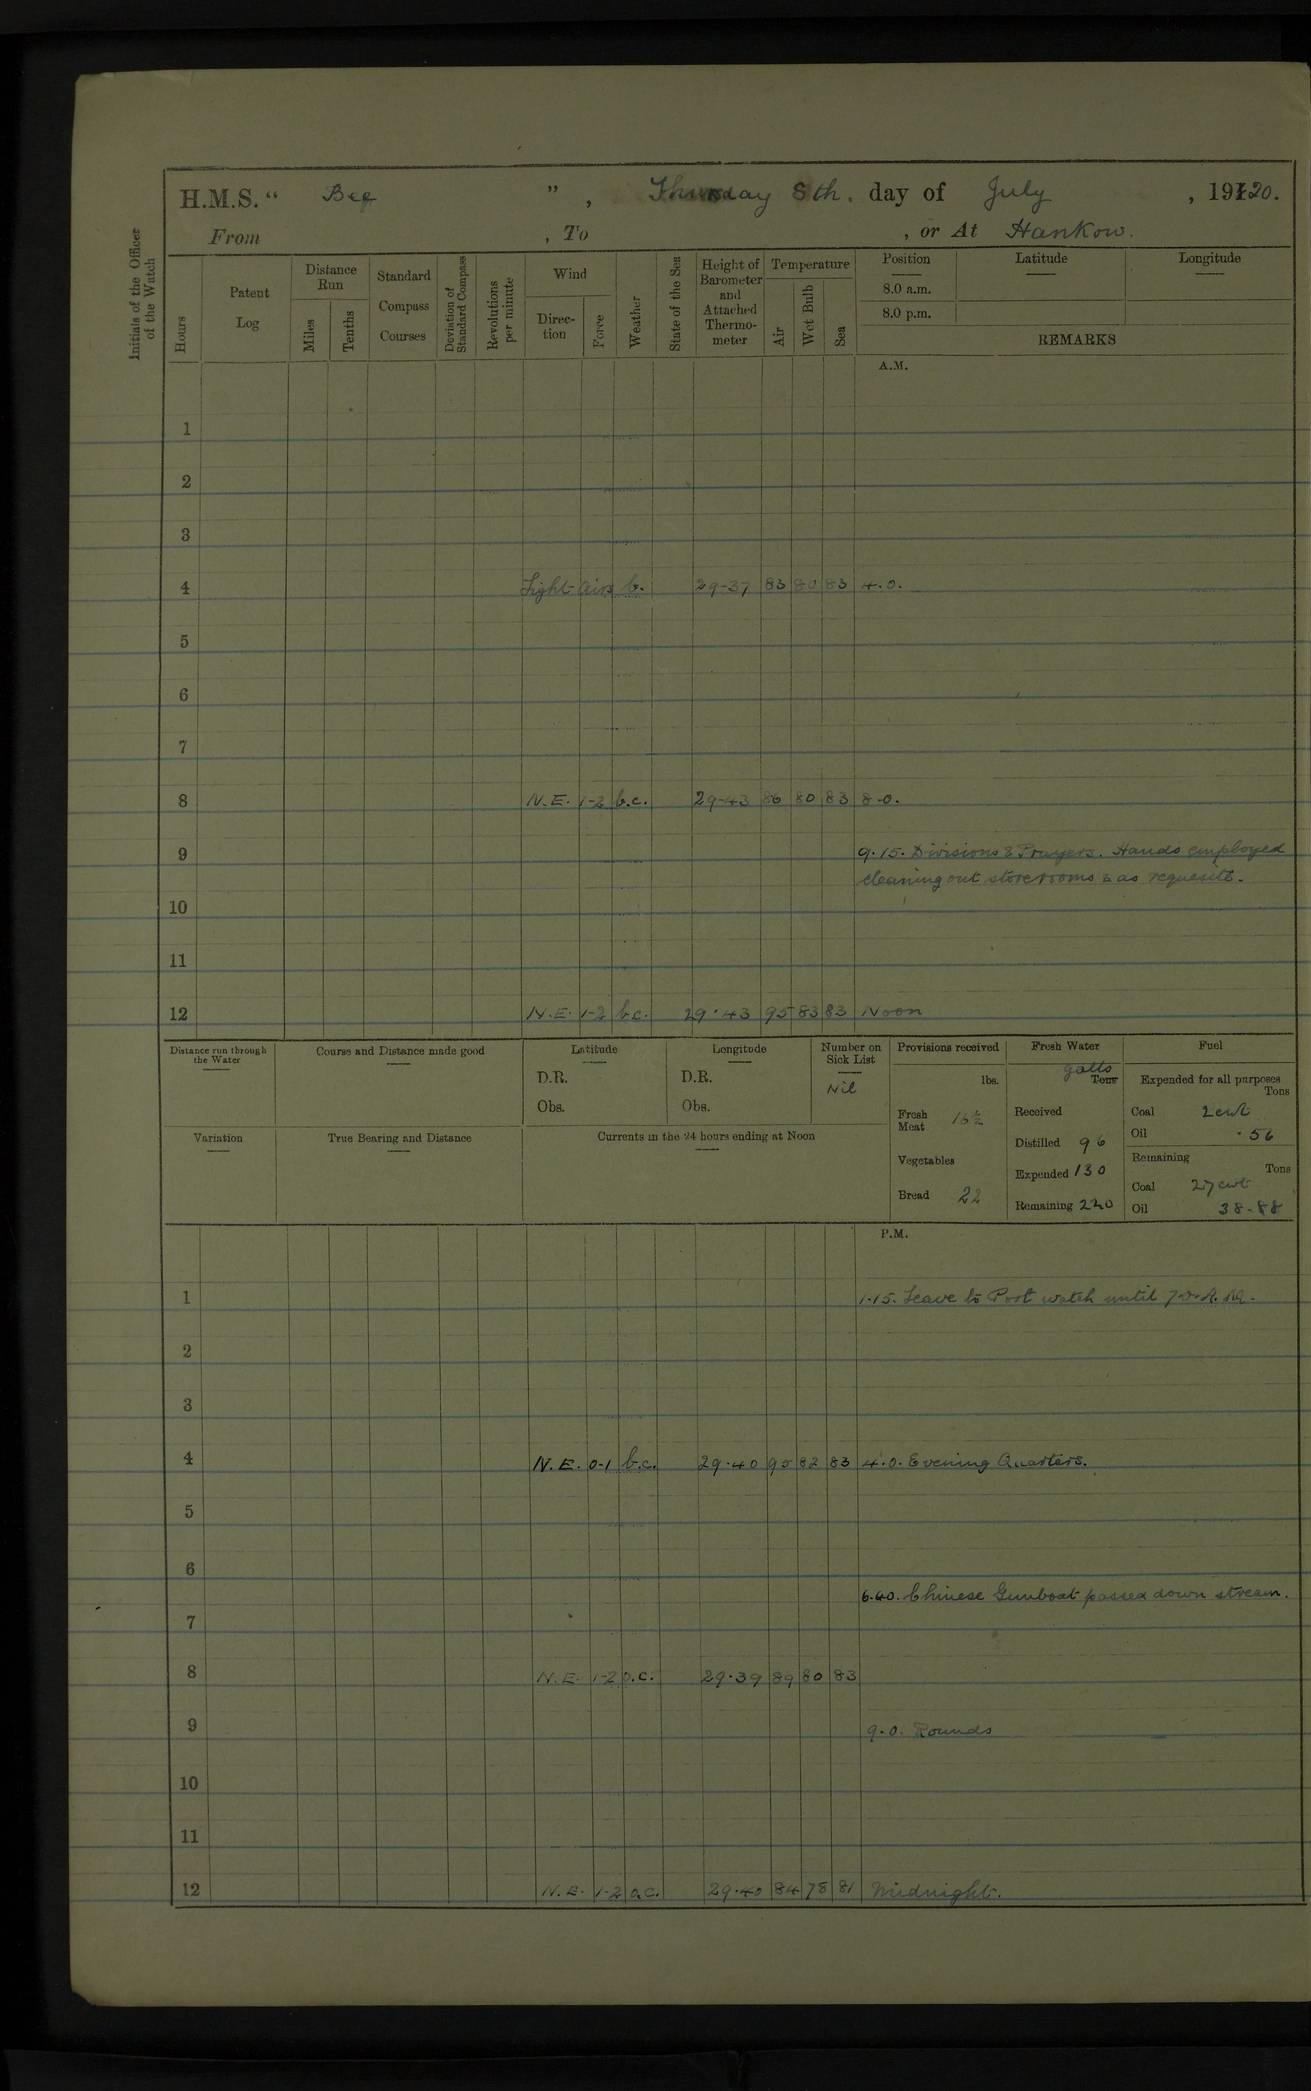 H.M.S. " Bee ", Thursday 8th. day of July, 1920.
From , To , or At Hankow.
Initials of the Officer of the Watch
Hours
Patent Log
Distance Run
Miles
Tenths
Standard Compass Courses
Deviation of Standard Compass
Revolutions per minute
Wind
Direction
Force
Weather
State of the Sea
Height of Barometer and Attached Thermometer
Temperature
Air
Wet Bulb
Sea
Position
8.0 a.m.
8.0 p.m.
Latitude
Longitude
REMARKS
A.M.
1
2
3
4 Light airs b. 29-37 83 80 83 4.0.
5
6
7
8 N.E. 1-2 b.c. 29-43 86 80 83 8-0.
9 9.15. Divisions & Prayers. Hands employed
cleaning out storerooms & as requesite.
10
11
12 N.E. 1-2 b.c. 29.43 95 83 83 Noon
Distance run through the Water
Course and Distance made good
Latitude
D.R.
Obs.
Longitude
D.R.
Obs.
Number on Sick List
Nil
Variation
True Bearing and Distance
Currents in the 24 hours ending at Noon
Provisions received
lbs.
Fresh Meat 16½
Vegetables
Bread 22
Fresh Water
galls
Tons
Received
Distilled 96
Expended 130
Remaining 220
Fuel
Expended for all purposes
Tons
Coal 2cwt
Oil .56
Remaining
Tons
Coal 27cwt
Oil 38-88
P.M.
1 1.15. Leave to Port watch until 7.0. A.M.
2
3
4 N.E. 0-1 b.c. 29.40 95 82 83 4.0. Evening Quarters.
5
6
6.40. Chinese Gunboat passed down stream.
7
8 N.E. 1-2 o.c. 29.39 89 80 83
9 9.0. Rounds
10
11
12 N.E. 1-2 o.c. 29.40 84 78 81 Midnight.